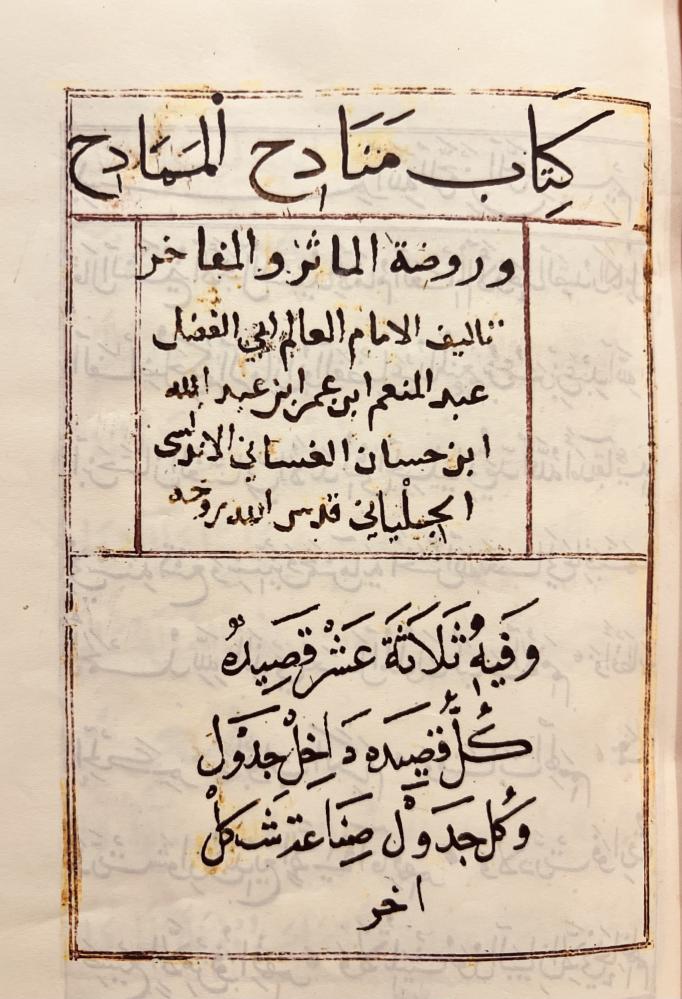 كِتَاب مَنَادِح المَمَادِح
وروضة الماثر والمفاخر
تاليف الامام العالم ابي الفضل
عبد المنعم ابن عمر ابن عبد الله
ابن حسان الغساني الاندلسى
الجيلْياني قدس الله روحه
وَفَيِهُ ثَلَاثَة عَشَرْ قَصِيدَهُ
كُلُّ قصِيدَه دَاخِلْ جَدْوَل
وَكُل جدوَل صِنَاعة شَكلْ
اخر